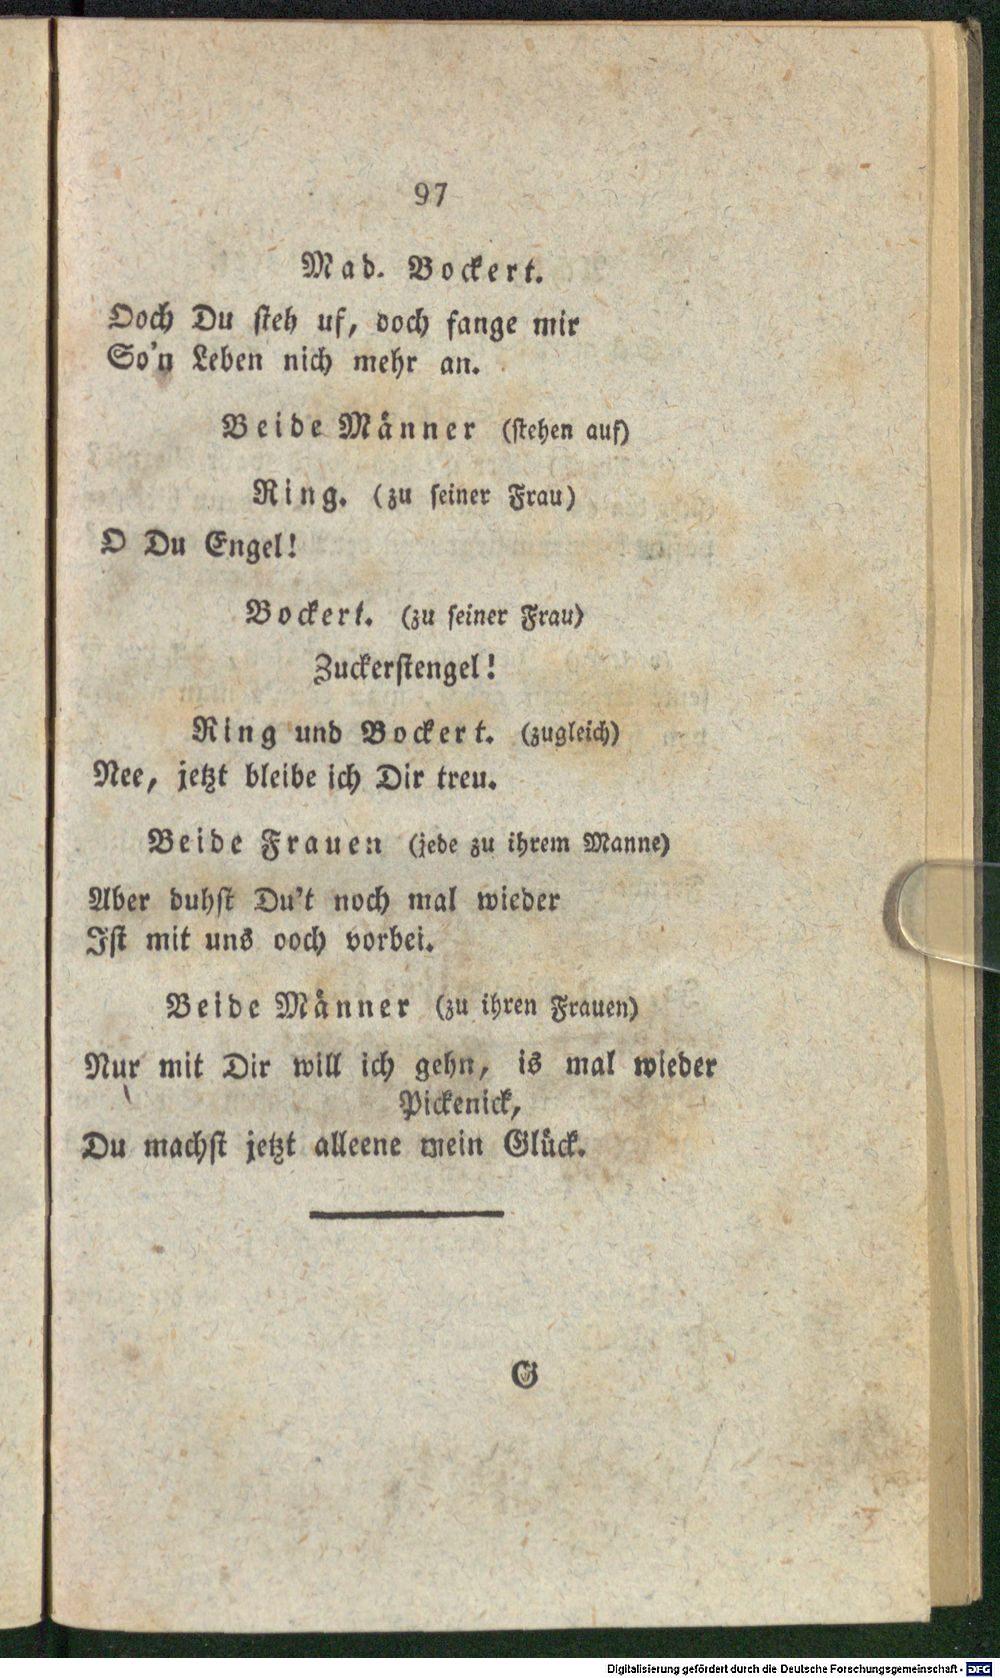 97
Mad. Bockert.
Ooch Du steh uf, doch fange mir
So'n Leben nich mehr an.
Beide Männer (stehen auf)
Ring. (zu seiner Frau)
O Du Engel!
Bockert. (zu seiner Frau)
Zuckerstengel!
Ring und Bockert. (zugleich)
Nee, jetzt bleibe ich Dir treu.
Beide Frauen (jede zu ihrem Manne)
Aber duhst Du't noch mal wieder
Ist mit uns ooch vorbei.
Beide Männer (zu ihren Frauen)
Nur mit Dir will ich gehn, is mal wieder
Pickenick,
Du machst jetzt alleene mein Glück.
G
Digitalisierung gefördert durch die Deutsche Forschungsgemeinschaft - DFG